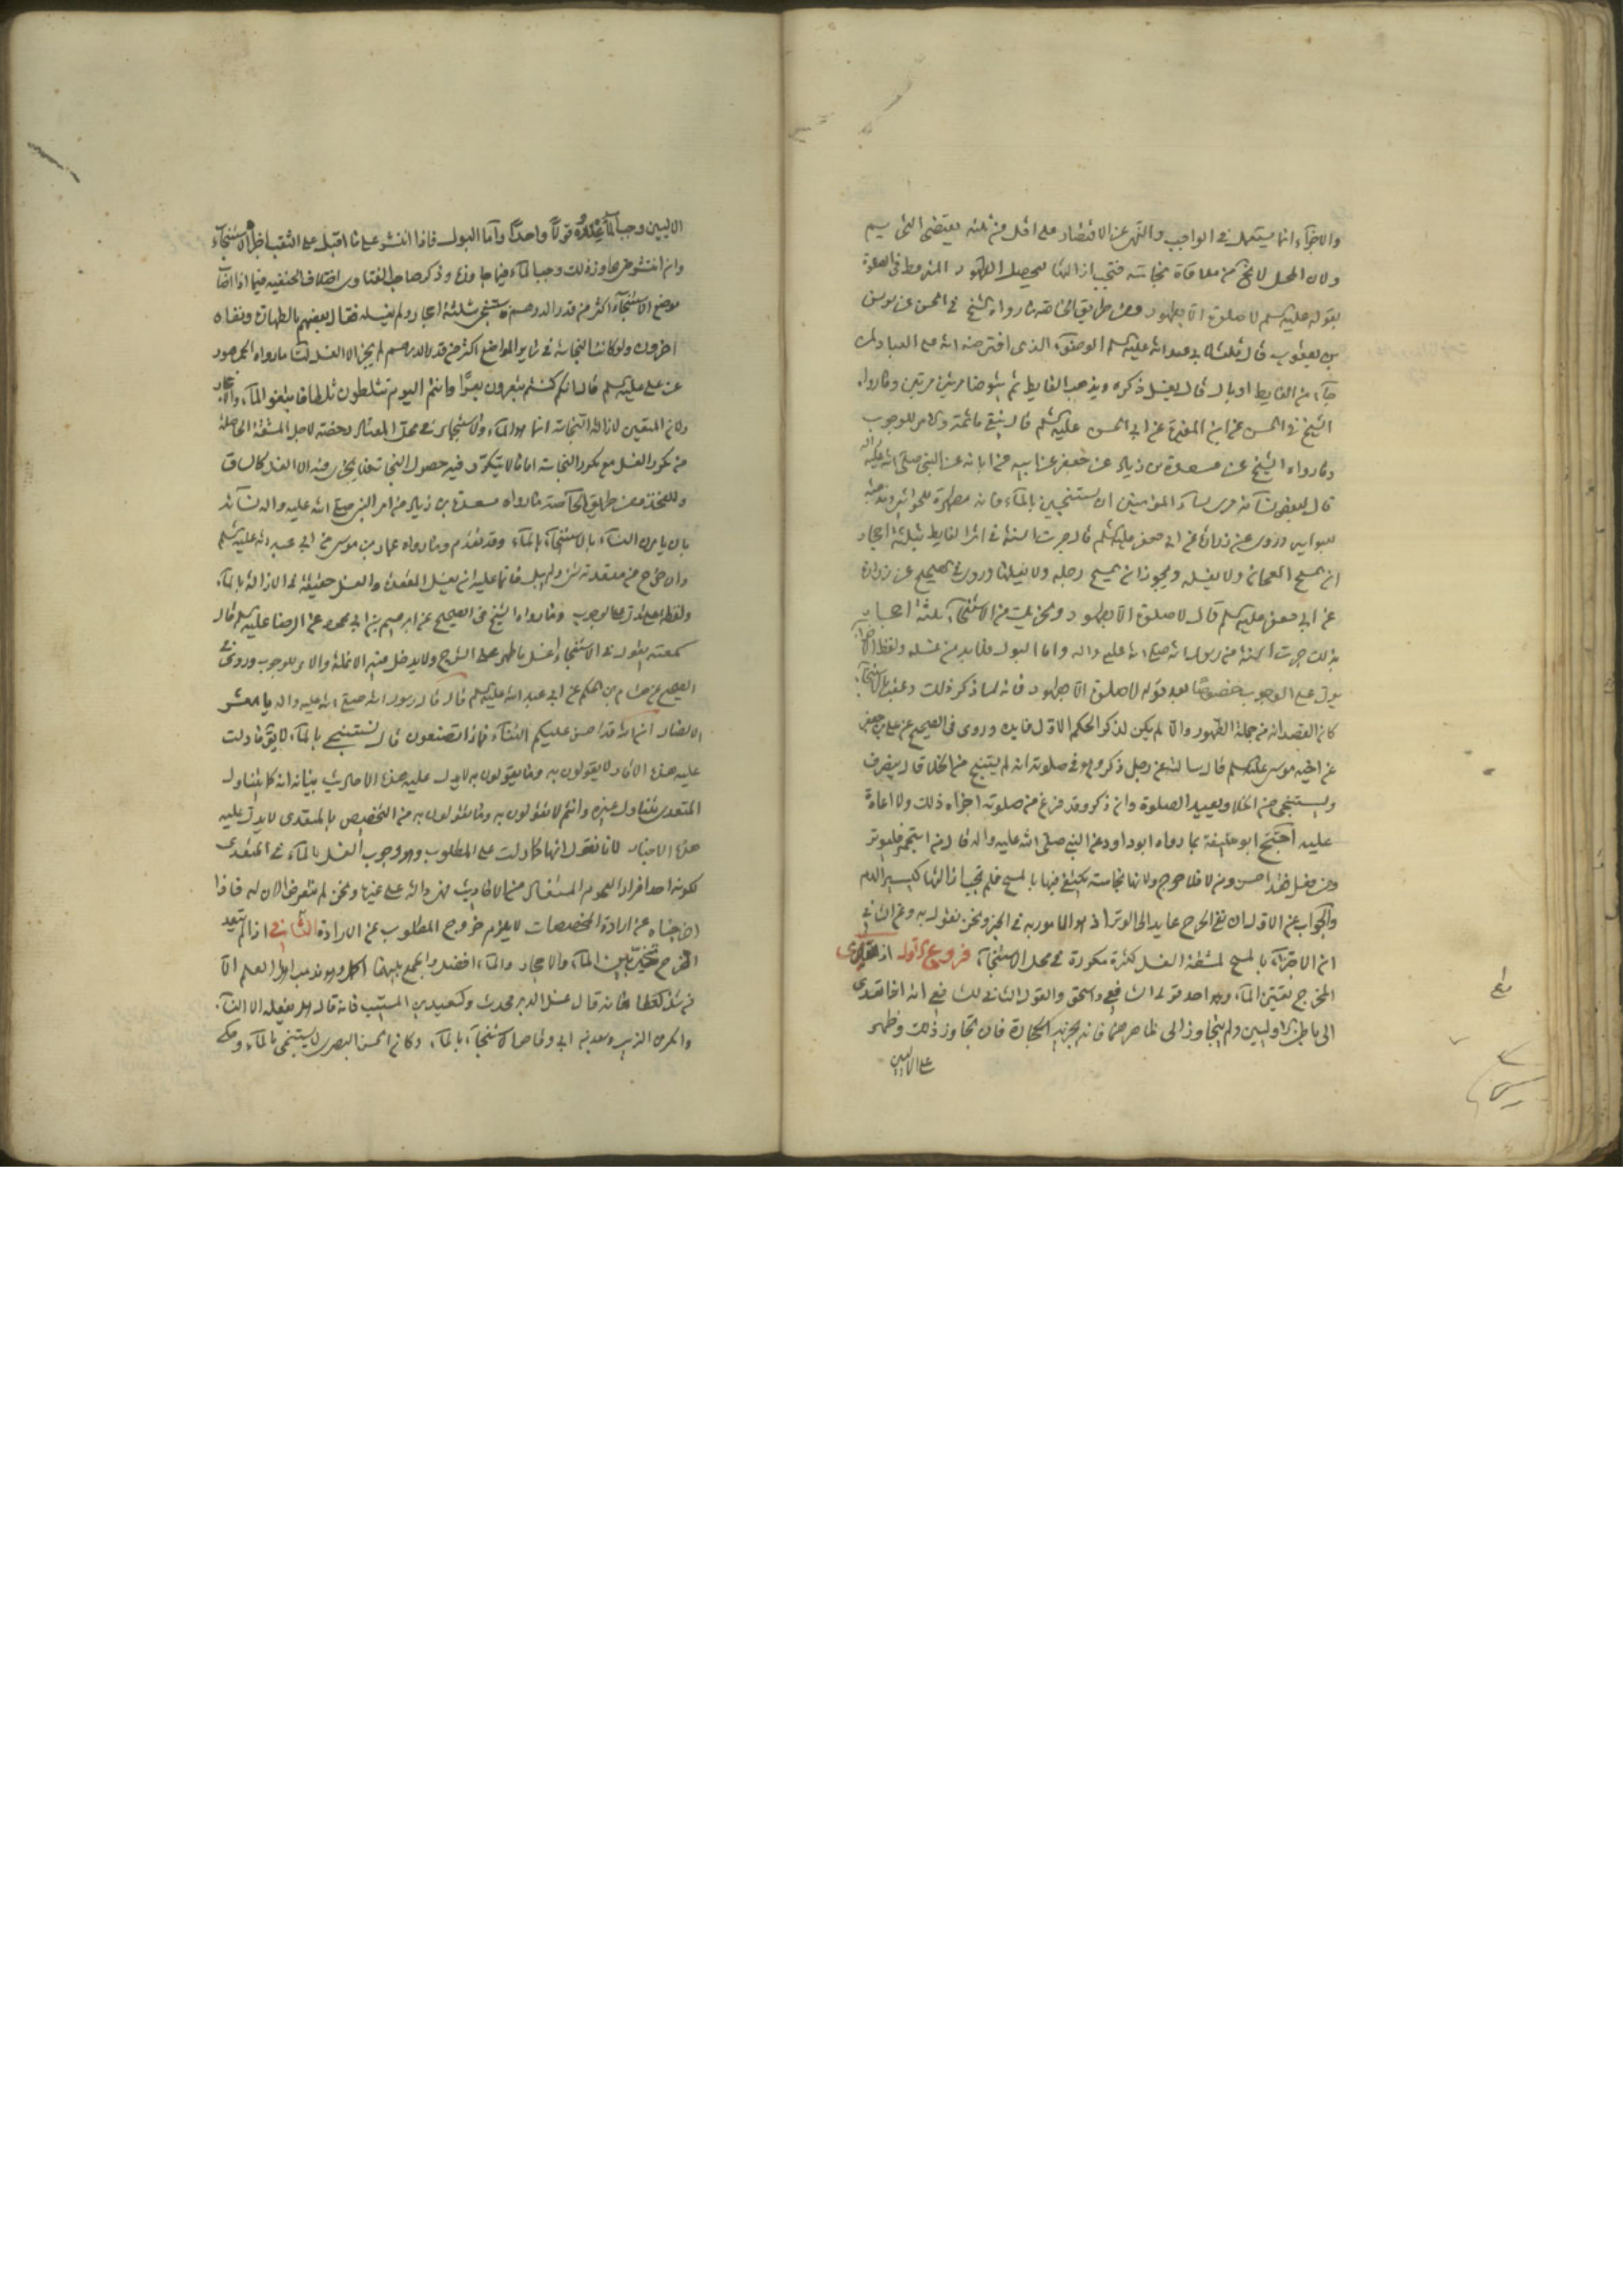 والاجزاء انما يستعمل في الواجب والنهى عن الاقتصار على اقل من ثلثه يقتضى التحريم
ولان المحل لا يخ من ملاقاة نجاسته فتجب ازالتها لتحصيل الطهور المشروط في الصلوة
بقوله عليه السلم لا صلوة الا بطهور ومن طريق الخاصة ما رواه الشيخ في الحسن عن يونس
بن يعقوب قال قلت لابي عبد الله عليه السلم الوضوء الذى افترضه الله على العباد لمن
جآء من الغايط او بال قال يغسل ذكره ويذهب الغايط ثم يتوضا مرتين مرتين وما رواه
الشيخ في الحسن عن ابن المغيرة عن ابي الحسن عليه السلم قال ينقى ما ثمة والامر للوجوب
وما رواه الشيخ عن مسعدة بن زياد عن جعفر عن ابيه عن ابائه عن النبي صلى الله عليه واله
قال لبعض نسآئه مرى نساء المؤمنين ان يستنجين بالمآء فانه مطهرة للحواشى ومذهبة
للبواسير وروى عن زرارة عن ابي جعفر عليه السلم قال جرت السنة في اثر الغايط بثلثة احجار
ان يمسح العجان ولا يغسله ويجوز ان يمسح رجليه ولا يغسلهما وروى في الصحيح عن زرارة
عن ابي جعفر عليه السلم قال لا صلوة الا بطهور ويجزيك من الاستنجآء ثلثة احجار
بذلك جرت السنة من رسول الله صلى الله عليه واله واما البول فلا بد من غسله ولفظ الاجزاء
يدل على الوجوب خصوصًا بعد قوله لا صلوة الا بطهور فانه لما ذكر ذلك وعقب بالاستنجآء
كان القصد انه من جملة الطهور والا لم يكن لذكر الحكم الاول فايدة وروى في الصحيح عن على بن جعفر
عن اخيه موسى عليه السلم قال سالته عن رجل ذكر وهو في صلوته انه لم يستنج من الخلا قال ينصرف
ويستنجى من الخلا ويعيد الصلوة وان ذكر وقد فرغ من صلوته اجزاه ذلك ولا اعادة
عليه احتج ابو حنيفة بما رواه ابو داود عن النبي صلى الله عليه واله قال من استجمر فليوتر
ومن فعل فقد احسن ومن لا فلا حرج ولانها نجاسة يكتفى فيها بالمسح فلم تجب ازالتها كيسير الدم
والجواب عن الاول ان نفى الحرج عايد الى الوتر اذ هو المامور به في الخبر ونحن نقول به وعن الثاني
ان الاجتزآء بالمسح لمشقة الغسل لكثرة تكررة في محل الاستنجآء فروع الاول اذا تعدى
المخرج تعين المآء وهو احد قولى الشافعى واسحق والقول الثانى للشافعى انه اذا تعدى
الى باطن الاليين ولم يتجاوز الى ظاهرهما فانه يجزيه الحجارة فان تجاوز ذلك وظهر
على الاليين
الاليين وجب المآء عنده قولًا واحدًا واما البول فاذا انتشر على ما اقبل على الثقب اجزأه الاستنجآء
وان انتشر حتى جاوز ذلك وجب المآء فيما جاوزه وذكر صاحب الفتاوى اختلاف الحنفيه فيما اذا اصاب
موضع الاستنجآء اكثر من قدر الدرهم فاستنجى بثلثة احجار ولم يغسله فقال بعضهم بالطهارة ونفاه
اخرون ولو كانت النجاسة في ساير المواضع اكثر من قدر الدرهم لم يجز الا الغسل لنا ما رواه الجمهور
عن على عليه السلم قال انكم كنتم تبعرون بعرًا وانتم اليوم تثلطون ثلطا فاتبعوا المآء الاحجار
ولان المتعين لازالة النجاسة انما هو المآء والاستنجمار في محل المعتاد رخصة لاجل المشقة الحاصلة
من تكرر الغسل مع تكرر النجاسة اما ما لا يتكرر فيه حصول النجاسة فلا يجزى منه الا الغسل كالساق
والفخذ ومن طريق الخاصة ما رواه مسعدة بن زياد من امر النبي صلى الله عليه واله نسآئه
بان يامرن النسآء بالاستنجآء بالمآء وقد تقدم وما رواه عمار بن موسى عن ابي عبد الله عليه السلم
وان خرج من مقعدته شئ ولم يبل فانما عليه ان يغسل المقعدة والغسل حقيقة في الازالة بالمآء
ولفظة على تدل على الوجوب وما رواه الشيخ في الصحيح عن ابرهيم بن ابي محمود عن الرضا عليه السلم قال
سمعته يقول في الاستنجاء يغسل ما ظهر على الشرج ولا يدخل فيه الانملة والامر للوجوب وروى في
الصحيح عن هشام بن الحكم عن ابي عبد الله عليه السلم قال قال رسول الله صلى الله عليه واله يا معشر
الانصار ان الله قد احسن عليكم الثنآء فماذا تصنعون قال نستنجى بالمآء لا يق ما دلت
عليه هذه الاثار لا يقولون به وما يقولون به لا يدل عليه هذه الاحاديث بيانه انه كما يتناول
المتعدى يتناول غيره وانتم لا تقولون به وما تقولون به من التخصيص بالمتعدى لا يدل عليه
هذه الاخبار لانا نقول انها كما دلت على المطلوب وهو وجوب الغسل بالمآء في المتعدى
لكونه احد افراد العموم المستفاد من الاحاديث فهى دالة على غيرها ونحن لم نتعرض الان له فاذا
اخرجناه عن ارادة المخصصات لا يلزم خروج المطلوب عن الارادة الثاني اذا لم يتعد
المخرج تخير بين المآء والاحجار والمآء افضل والجمع بينهما اكمل وهو مذهب اهل العلم الا
من شذ كعطا فانه قال غسل الدبر محدث وكسعيد بن المسيب فانه قال هل يفعله الا النسآء
وانكره ابن الزبير وسعد بن ابي وقاص الاستنجآء بالمآء وكان الحسن البصرى لا يستنجى بالمآء وحكى